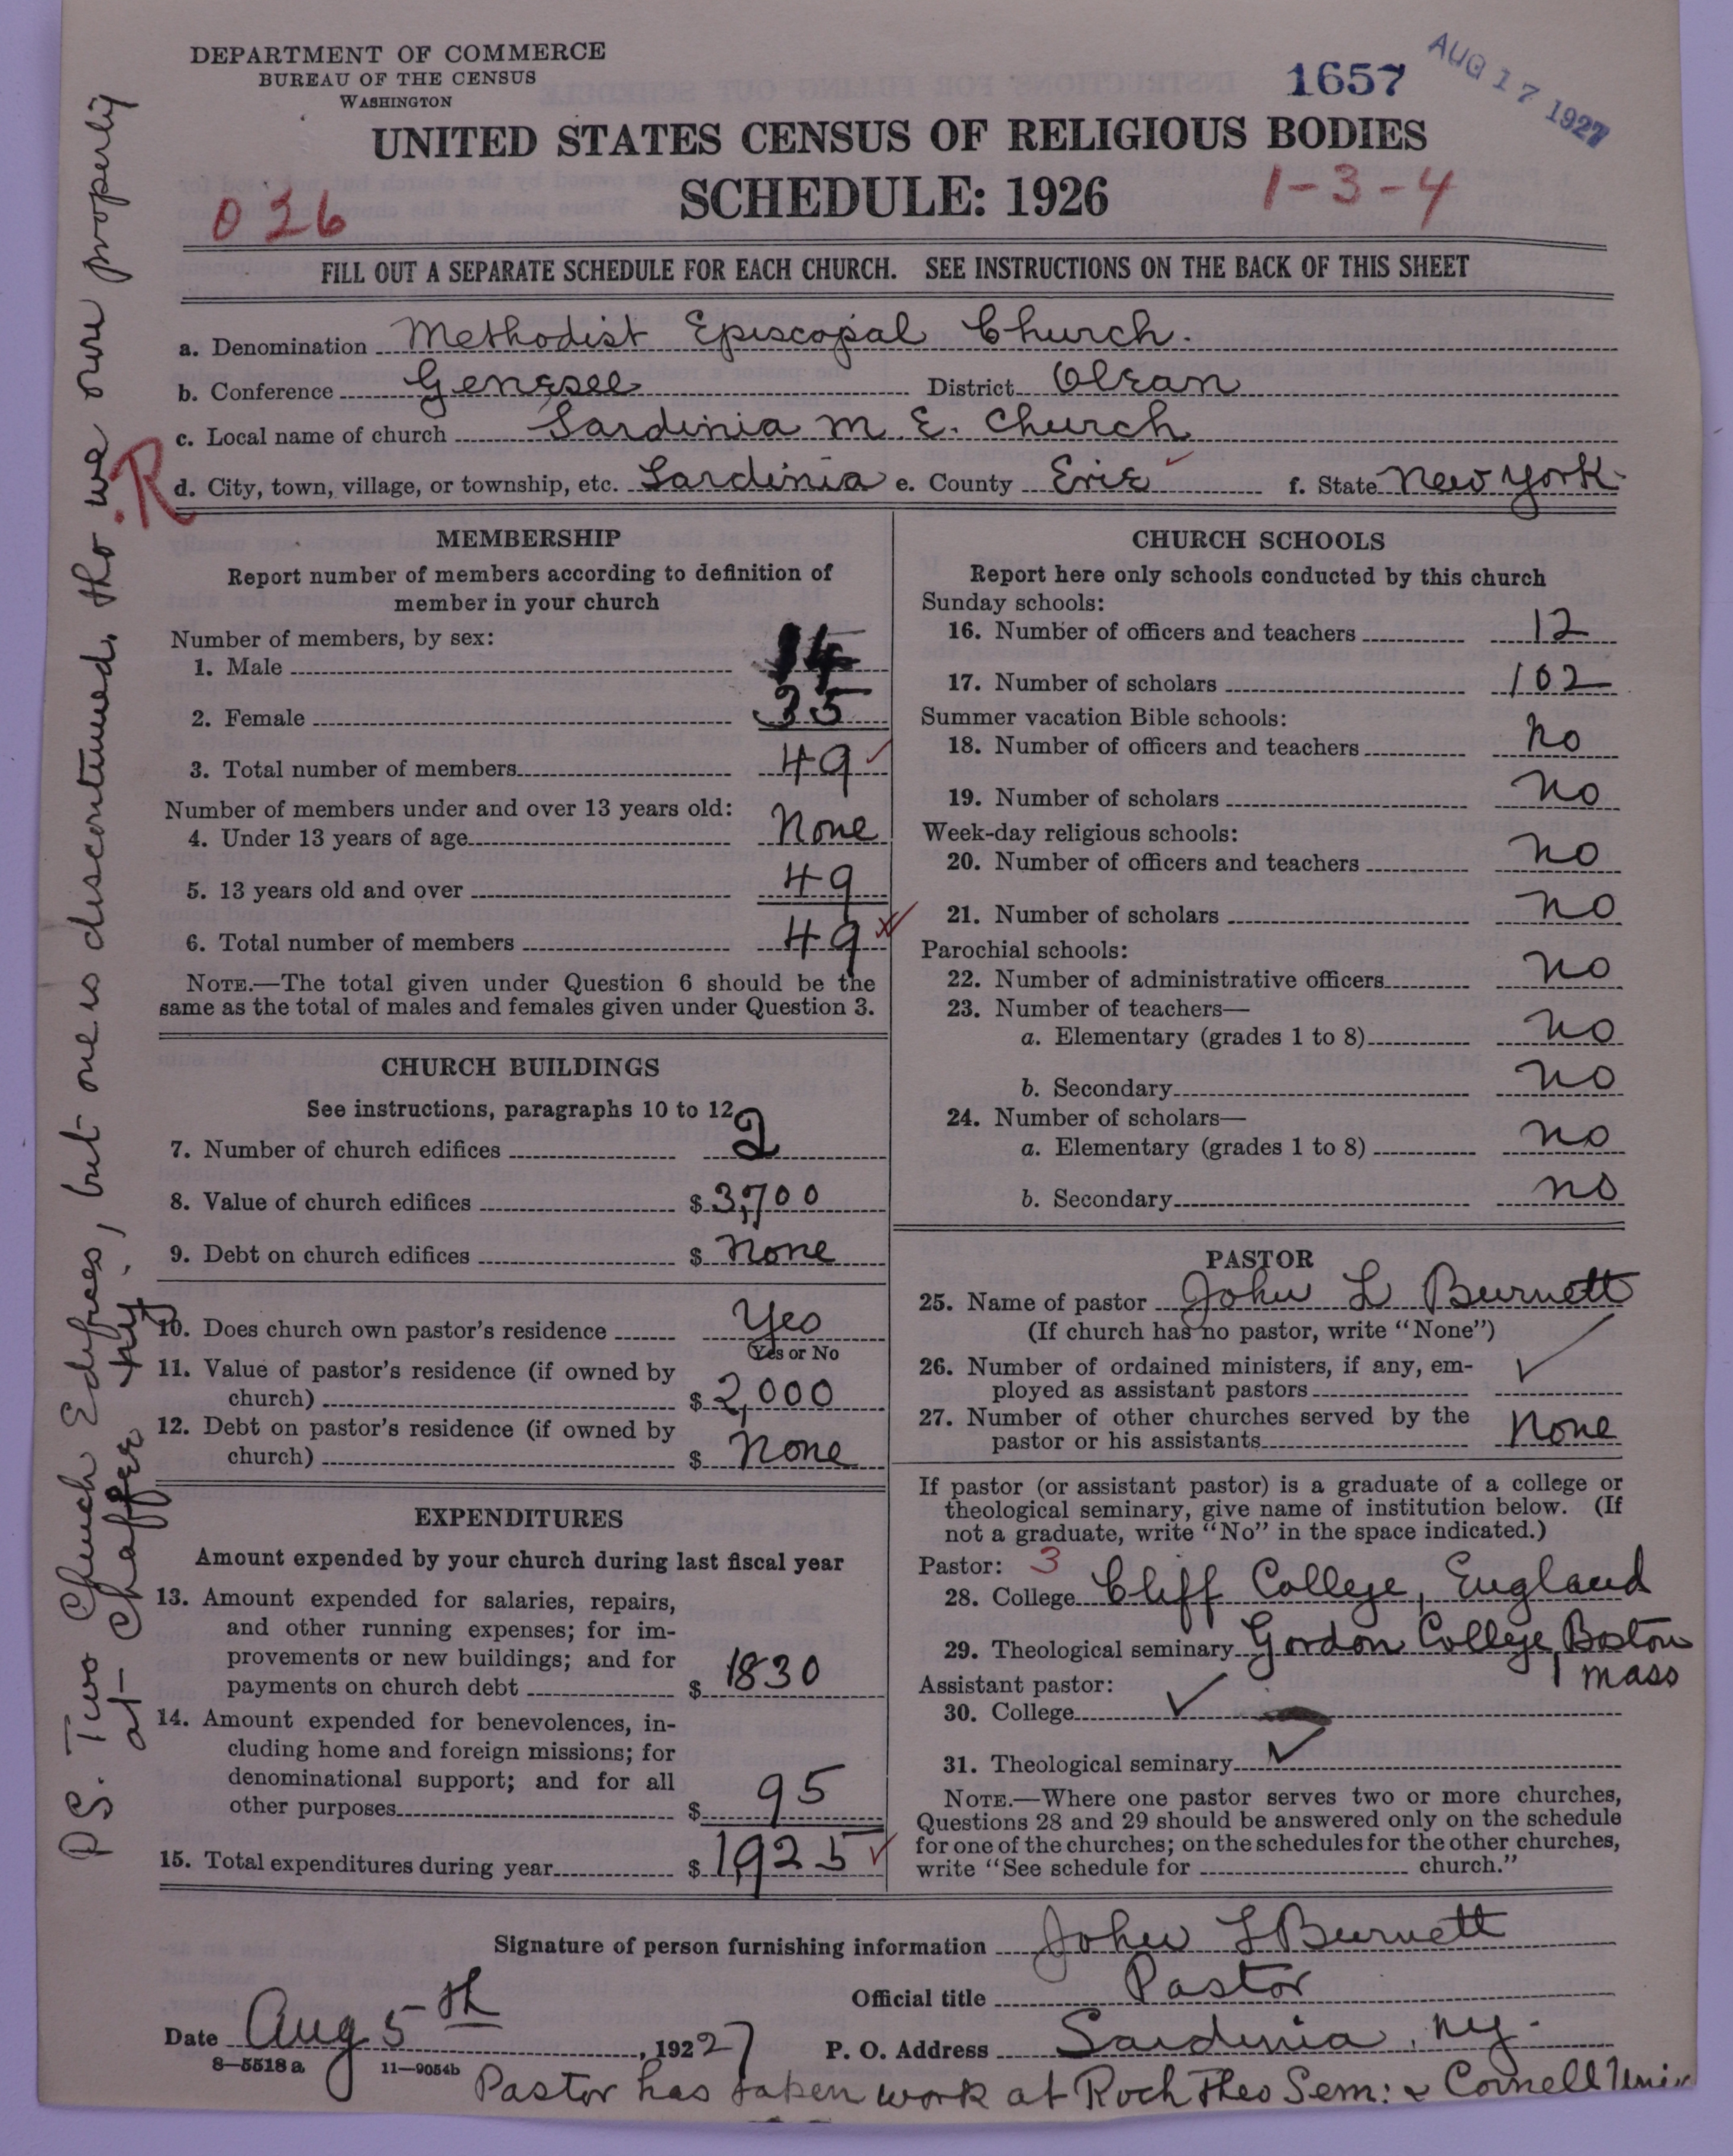 DEPARTMENT OF COMMERCE
BUREAU OF THE CENSUS
WASHINGTON
1657
AUG 17 1927
UNITED STATES CENSUS OF RELIGIOUS BODIES
SCHEDULE: 1926
026
1-3-4
FILL OUT A SEPARATE SCHEDULE FOR EACH CHURCH. SEE INSTRUCTIONS ON THE BACK OF THIS SHEET
a. Denomination Methodist Episcopal Church.
b. Conference Genesee District Olean
c. Local name of church Sardinia M. E. Church
R
d. City, town, village, or township, etc. Sardinia e. County Erie f. State New York.
MEMBERSHIP
Report number of members according to definition of
member in your church
Number of members, by sex:
1. Male 14
2. Female 35
3. Total number of members 49
Number of members under and over 13 years old:
4. Under 13 years of age None
5. 13 years old and over 49
6. Total number of members 49
NOTE.—The total given under Question 6 should be the
same as the total of males and females given under Question 3.
CHURCH BUILDINGS
See instructions, paragraphs 10 to 12
7. Number of church edifices 2
8. Value of church edifices $ 3,700
9. Debt on church edifices $ None
10. Does church own pastor's residence Yes
(Yes or No
11. Value of pastor's residence (if owned by
church) $ 2,000
12. Debt on pastor's residence (if owned by
church) $ None
EXPENDITURES
Amount expended by your church during last fiscal year
13. Amount expended for salaries, repairs,
and other running expenses; for im-
provements or new buildings; and for
payments on church debt $ 1830
14. Amount expended for benevolences, in-
cluding home and foreign missions; for
denominational support; and for all
other purposes $ 95
15. Total expenditures during year $ 1925
CHURCH SCHOOLS
Report here only schools conducted by this church
Sunday schools:
16. Number of officers and teachers 12
17. Number of scholars 102
Summer vacation Bible schools:
18. Number of officers and teachers no
19. Number of scholars no
Week-day religious schools:
20. Number of officers and teachers no
21. Number of scholars no
Parochial schools:
22. Number of administrative officers no
23. Number of teachers—
a. Elementary (grades 1 to 8) no
b. Secondary no
24. Number of scholars—
a. Elementary (grades 1 to 8) no
b. Secondary no
PASTOR
25. Name of pastor John L Burnett
(If church has no pastor, write "None")
26. Number of ordained ministers, if any, em-
ployed as assistant pastors ✓
27. Number of other churches served by the
pastor or his assistants None
If pastor (or assistant pastor) is a graduate of a college or
theological seminary, give name of institution below. (If
not a graduate, write "No" in the space indicated.)
Pastor: 3
28. College Cliff College, England
29. Theological seminary Gordon College, Boston
Mass
Assistant pastor:
30. College ✓
31. Theological seminary ✓
NOTE.—Where one pastor serves two or more churches,
Questions 28 and 29 should be answered only on the schedule
for one of the churches; on the schedules for the other churches,
write "See schedule for church."
Signature of person furnishing information John L Burnett
Official title Pastor
Date Aug 5th, 1927 P. O. Address Sardinia, NY.
8—5518 a 11—9054b
Pastor has taken work at Roch Theo Sem: & Cornell Univ
P.S. Two Church Edifices, but one is discontinued, tho we own property
at Chaffee NY.